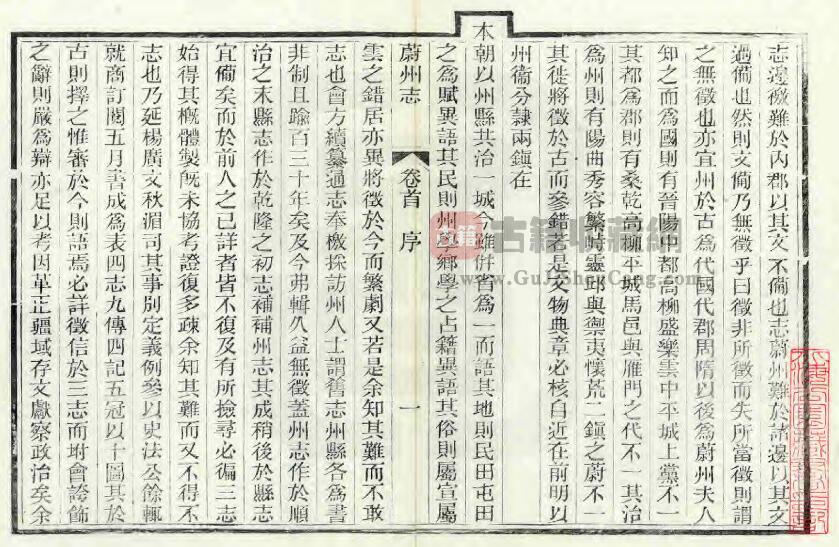 志邊徼難於內郡以其文不備也志蔚州難於諸邊以其文
過備也然則文備乃無徵乎曰徵非所徵而失所當徵則謂
之無徵也亦宜州於古為代國代郡周隋以後為蔚州夫人
知之而為國則有晉陽中都高柳盛樂雲中平城上黨不一
其都為郡則有桑乾高柳平城馬邑與雁門之代不一其治
為州則有陽曲秀容繁畤靈邱與禦夷懷荒二鎮之蔚不一
其徙將徵於古而參錯若是文物典章必核自近在前明以
州衞分隸兩鎮在
本朝以州縣共治一城今雖併省為一而語其地則民田屯田
之為賦異語其民則州學鄉學之占籍異語其俗則屬宣屬
蔚州志 卷首 序 一
雲之錯居亦異將徵於今而繁劇又若是余知其難而不敢
志也會方續纂通志奉檄採訪州人士謂舊志州縣各為書
非制且踰百三十年矣及今弗輯久益無徵蓋州志作於順
治之末縣志作於乾隆之初志補補州志其成稍後於縣志
宜備矣而於前人之已詳者皆不復及有所撿尋必徧三志
始得其概體製旣未協考證復多疎余知其難而又不得不
志也乃延楊廣文秋湄司其事別定義例參以史法公餘輒
就商訂閱五月書成為表四志九傳四記五冠以十圖其於
古則擇之惟審於今則語焉必詳徵信於三志而坿會誇飾
之辭則嚴為辯亦足以考因革正疆域存文獻察政治矣余
古籍收藏網
www.GuJiShouCang.com